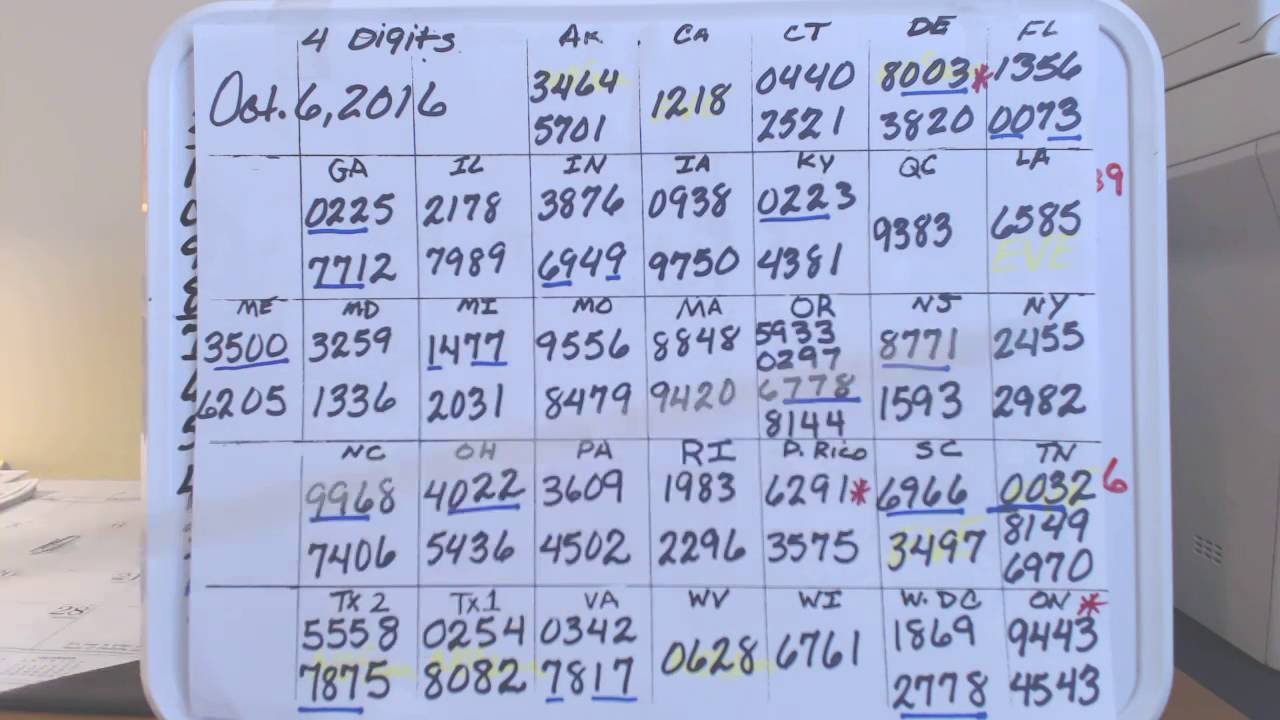 4 Digits AR CA CT DE FL
Oct. 6, 2016 3464 1218 0440 8003* 1356
5701 2521 3820 0073
GA IL IN IA KY QC LA
0225 2178 3876 0938 0223 9383 6585
7712 7989 6949 9750 4381 EVE
ME MD MI MO MA OR NJ NY
3500 3259 1477 9556 8848 5933 8771 2455
0297
6205 1336 2031 8479 9420 6778 1593 2982
8144
NC OH PA RI P. Rico SC TN
9968 4022 3609 1983 6291* 6966 0032 6
8149
7406 5436 4502 2296 3575 3497 6970
TX 2 TX 1 VA WV WI W. DC ON *
5558 0254 0342 0628 6761 1869 9443
7875 8082 7817 2778 4543
28